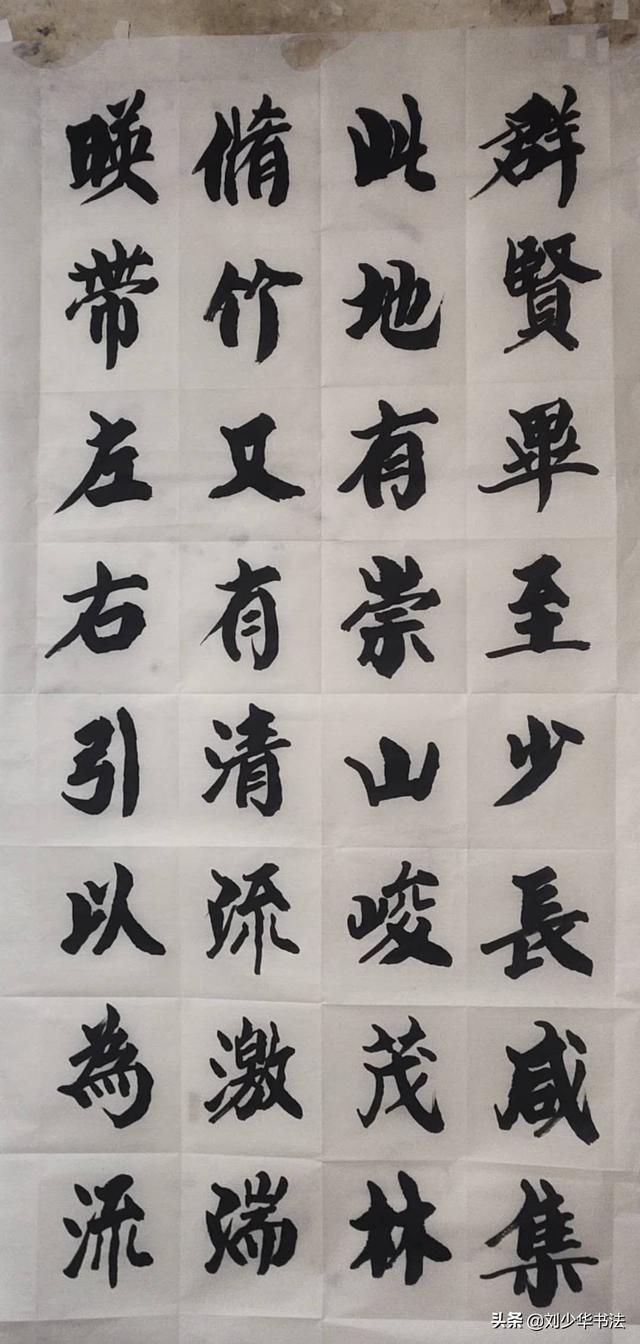 群賢畢至少長咸集
此地有崇山峻茂林
脩竹又有清流激湍
暎带左右引以為流
头条 @刘少华书法